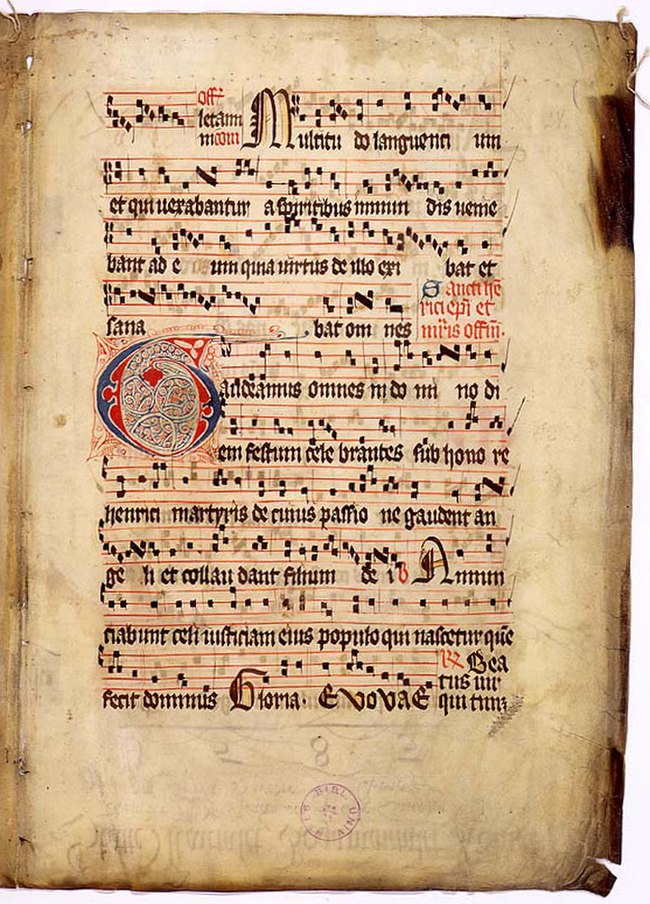 off
letam Multitu do languenti um
et qui uexabantur a spiritibus inmun dis uenie
bant ad e um quia uirtus de illo exi bat et
sana bat om nes
Sancti hē
rici epi et
mris offm.
Gaudeamus omnes in do mi no di
em festum cele brantes sub hono re
henrici martyris de cuius passio ne gaudent an
ge li et collau dant filium de i V Annun
ciabunt celi iusticiam eius populo qui nascetur quē
fecit dominus Gloria. EVOVAE
R Bea
tus uir
qui
BIBL UNIV